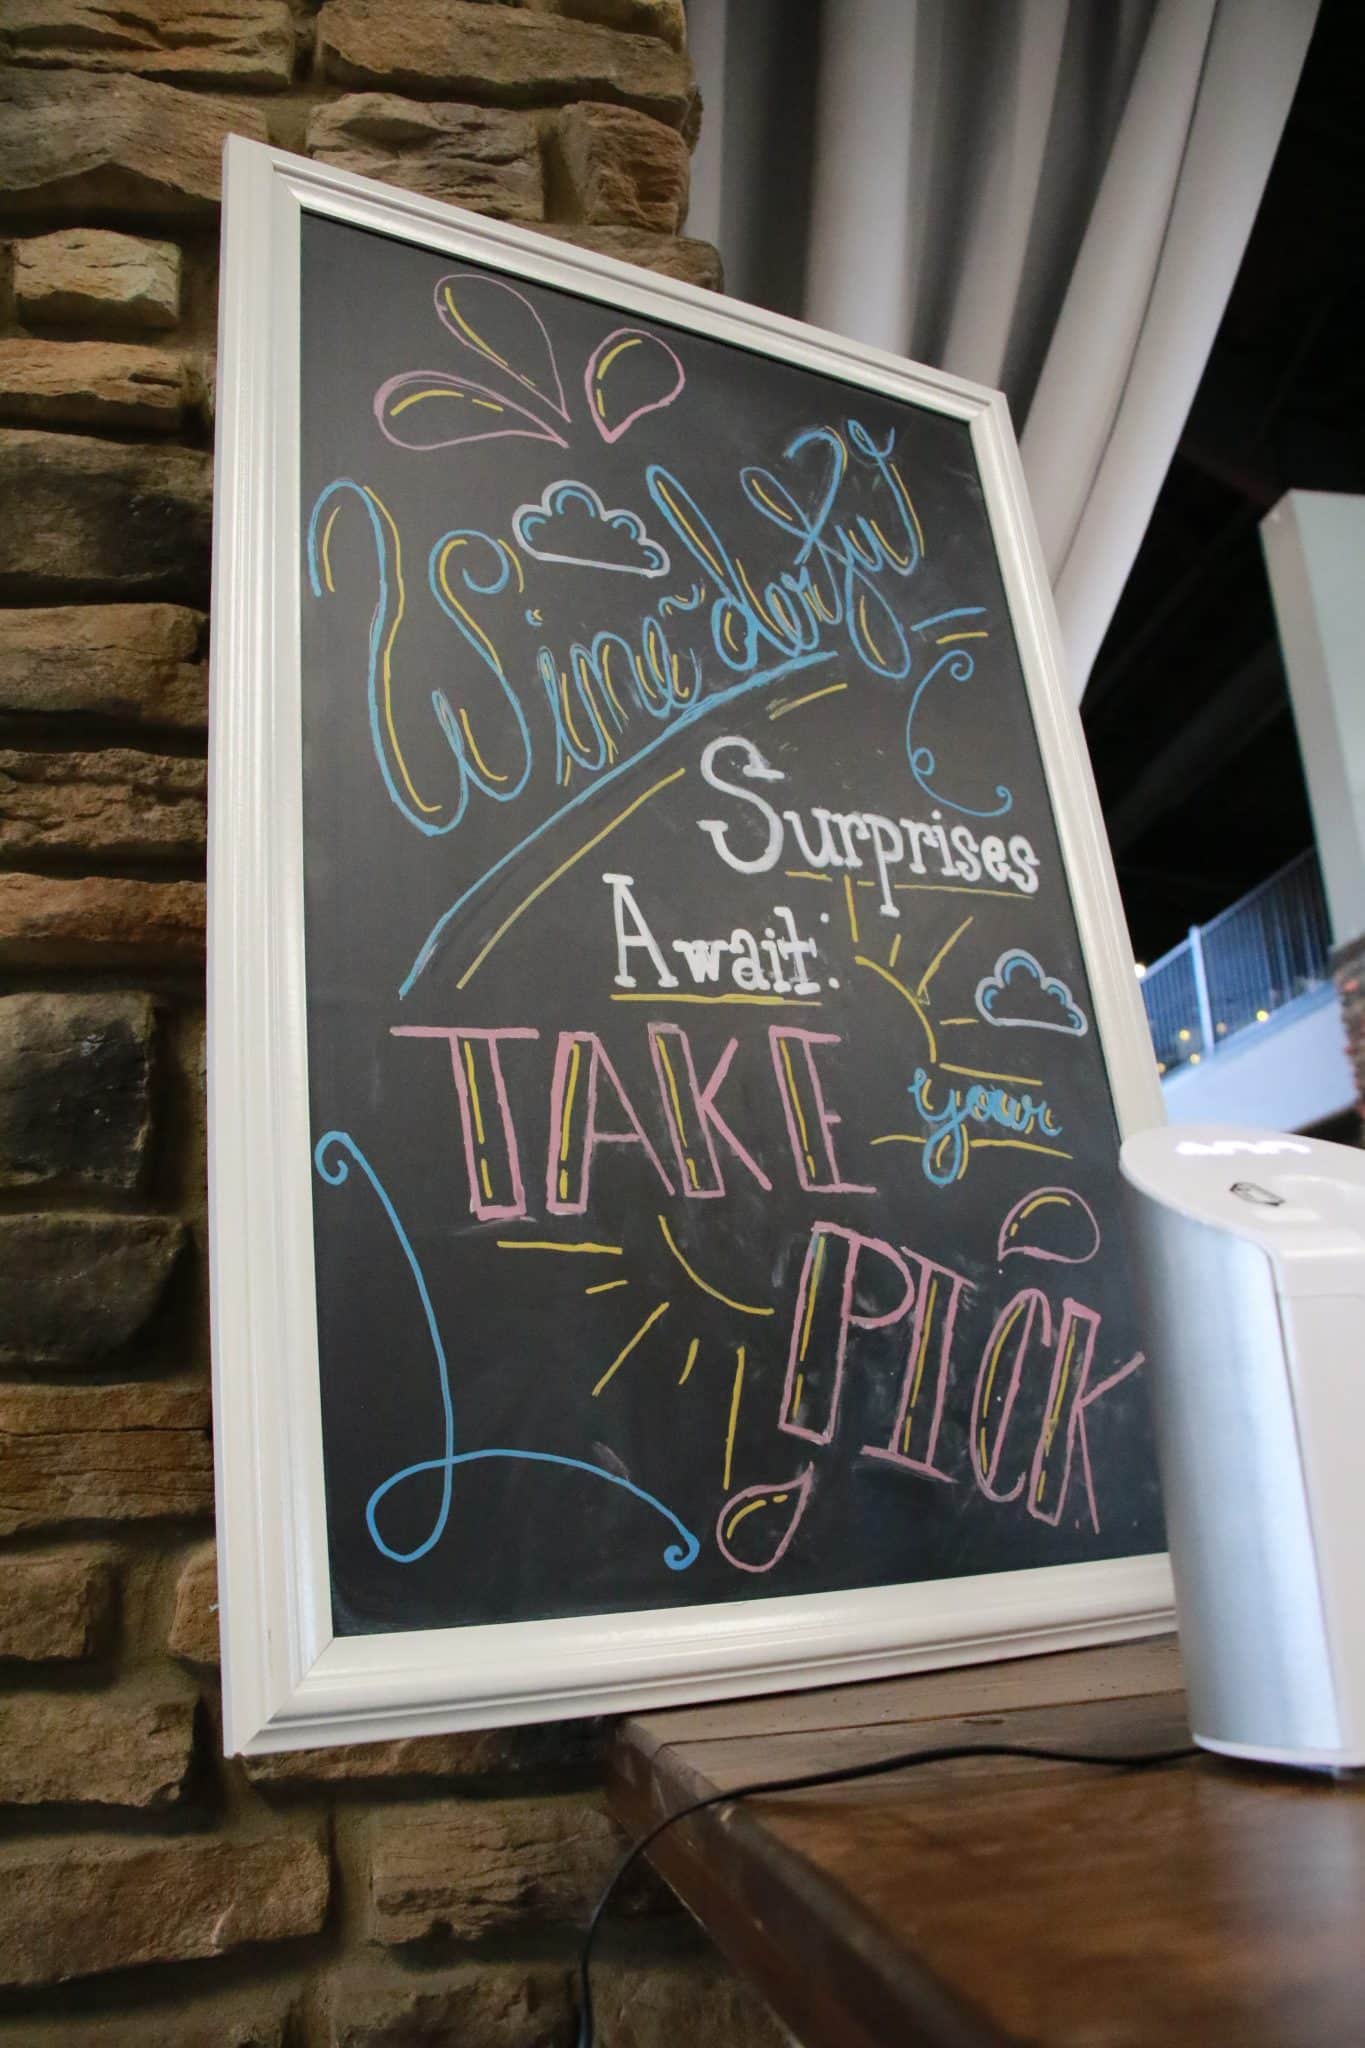 "Wine"derful
Surprises
Await:
TAKE your
PICK